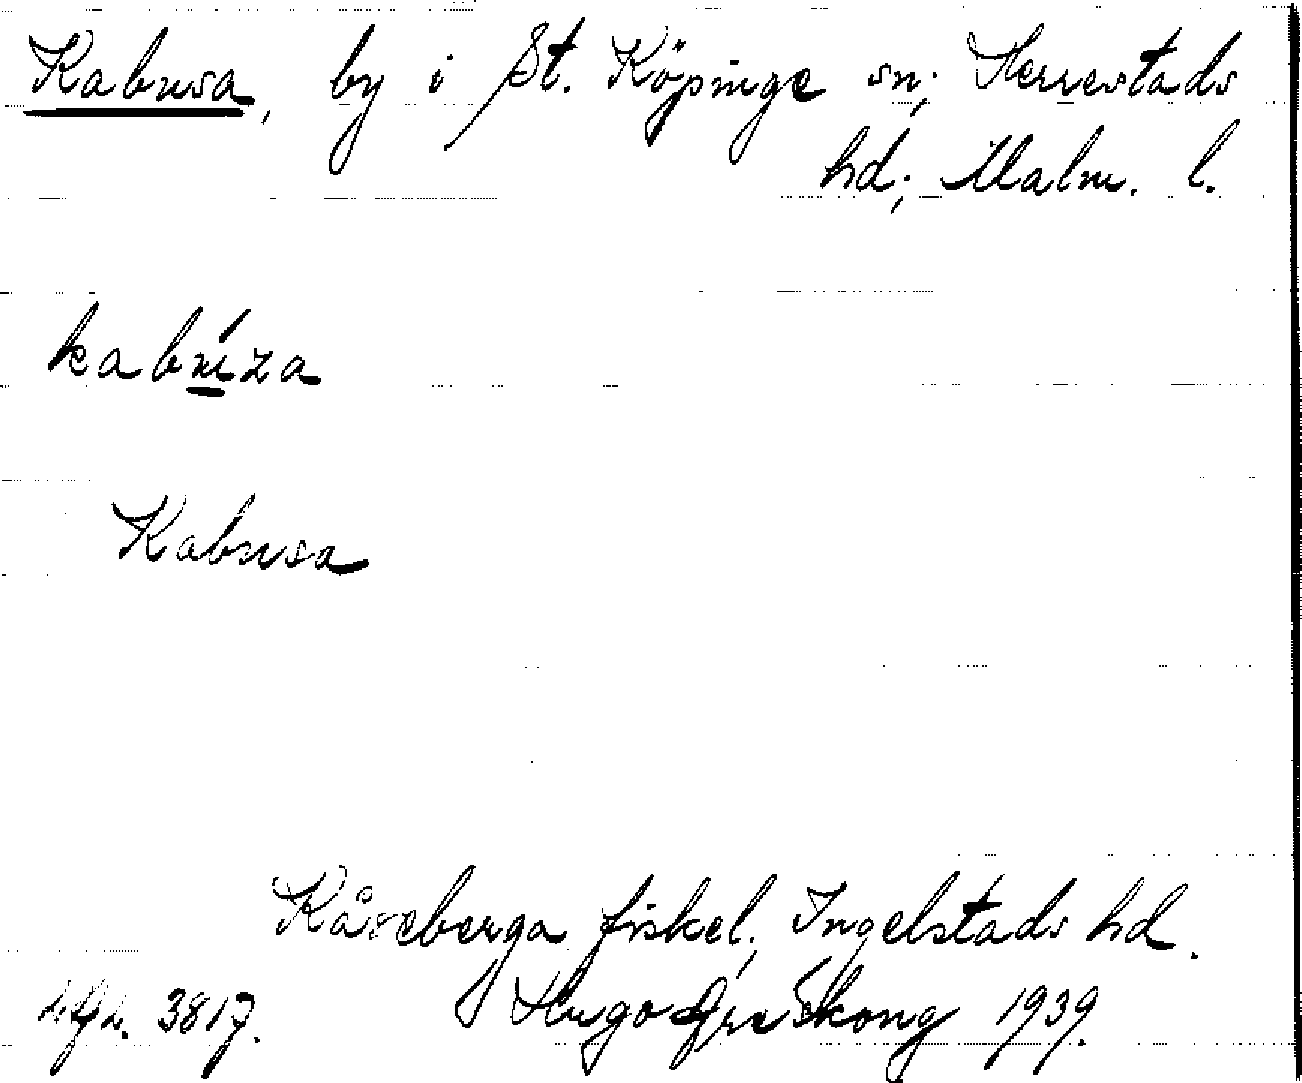 Kabusa, by i St. Köpinge sn; Herrestads
hd; Malm. l.
kabúza
Kabusa
Kåseberga fiskel., Ingelstads hd.
3817. Hugo Areskoug 1939.